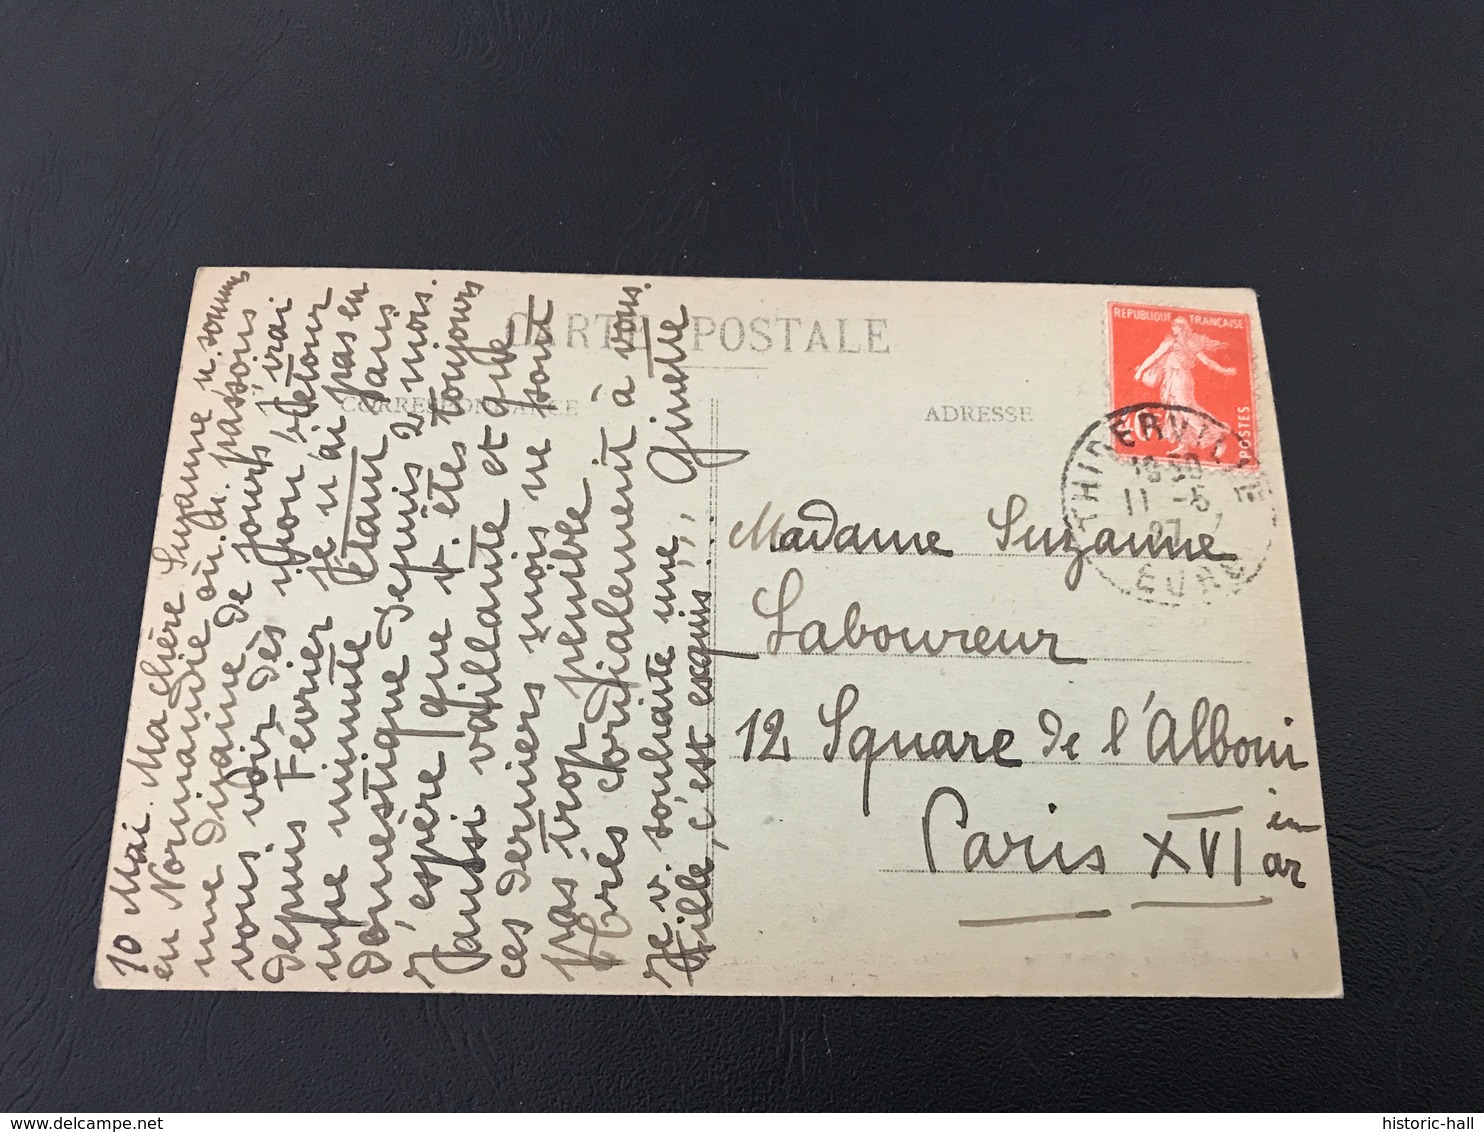 CARTE POSTALE
CORRESPONDANCE
ADRESSE
REPUBLIQUE FRANÇAISE
POSTES
THIBERVILLE
11 -5
27
EURE
10 Mai. Ma chère Suzanne n. sommes
en Normandie où n. passons
une dizaine de jours. J'irai
vous voir dès mon retour
depuis Février je n'ai pas eu
une minute étant sans
domestique depuis 2 mois.
J'espère que v. êtes toujours
aussi vaillante et que
ces derniers mois ne sont
pas trop pénible
Très cordialement à vous.
Ginette
Je v. souhaite une
fille, c'est exquis...
Madame Suzanne
Laboureur
12 Square de l'Alboni
Paris XVI
em
ar
historic-hall